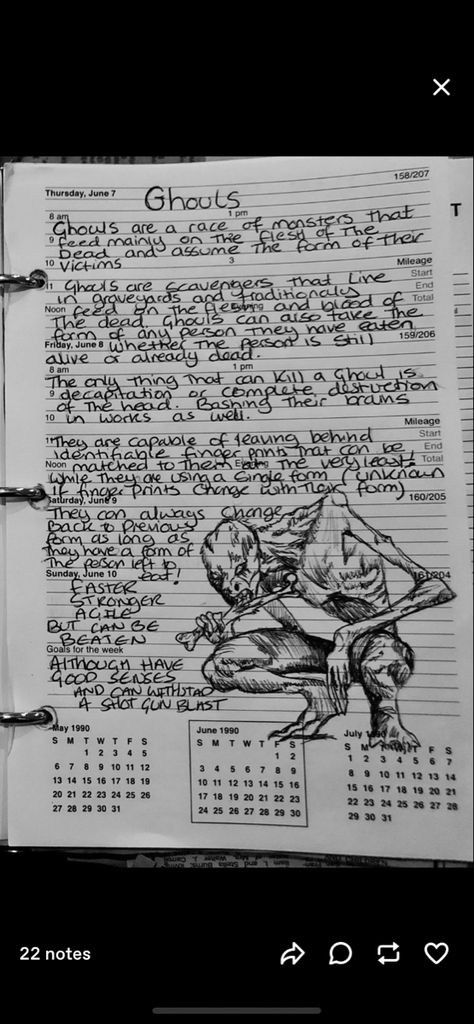 158/207
Thursday, June 7
Ghouls
8 am 1 pm
Ghouls are a race of monsters that
9 feed mainly on the flesh of the
Dead and assume the form of their
10 victims 3
Mileage
11 Ghouls are scavengers that live Start
in graveyards and traditionally End
Noon feed on the flesh and blood of Total
The dead Ghouls can also take the
form of any person they have eaten 159/206
Friday, June 8 whether the person is still
alive or already dead.
8 am 1 pm
The only thing that can kill a Ghoul is
9 decapitation or complete destruction
of the head. Bashing their brains
10 in works as well.
Mileage
11 They are capable of leaving behind Start
identifiable finger prints that can be End
Noon matched to them at the very least! Total
while they are using a single form (unknown
if finger prints change with their form)
Saturday, June 9 160/205
They can always change
Back to previous
form as long as
they have a form of
The person left to
eat!
Sunday, June 10 161/204
FASTER
STRONGER
AGILE
BUT CAN BE
BEATEN
Goals for the week
ALTHOUGH HAVE
GOOD SENSES
AND CAN WITHSTAD
A SHOT GUN BLAST
May 1990
S M T W T F S
1 2 3 4 5
6 7 8 9 10 11 12
13 14 15 16 17 18 19
20 21 22 23 24 25 26
27 28 29 30 31
June 1990
S M T W T F S
1 2
3 4 5 6 7 8 9
10 11 12 13 14 15 16
17 18 19 20 21 22 23
24 25 26 27 28 29 30
July 1990
S M T F S
1 2 3 4 5 6 7
8 9 10 11 12 13 14
15 16 17 18 19 20 21
22 23 24 25 26 27 28
29 30 31
T
22 notes